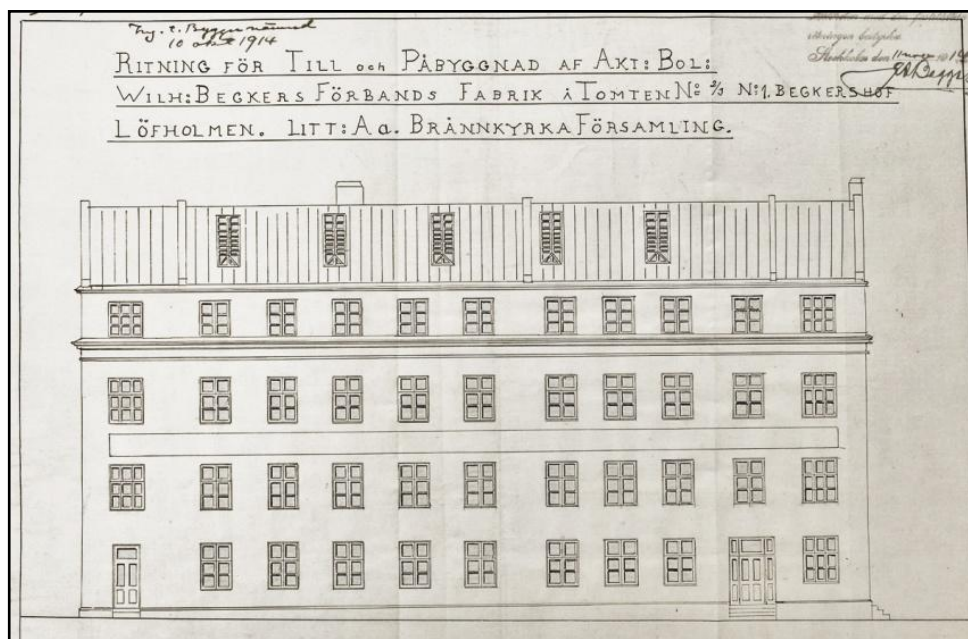 Ing. t. Byggn.nämnd
10 okt 1914
Stockholm den 11
RITNING FÖR TILL och PÅBYGGNAD AF AKT: BOL:
WILH: BEGKERS FÖRBANDS FABRIK Å TOMTEN No 2/3 N:1. BEGKERSHOF
LÖFHOLMEN. LITT: A a. BRÄNNKYRKA FÖRSAMLING.